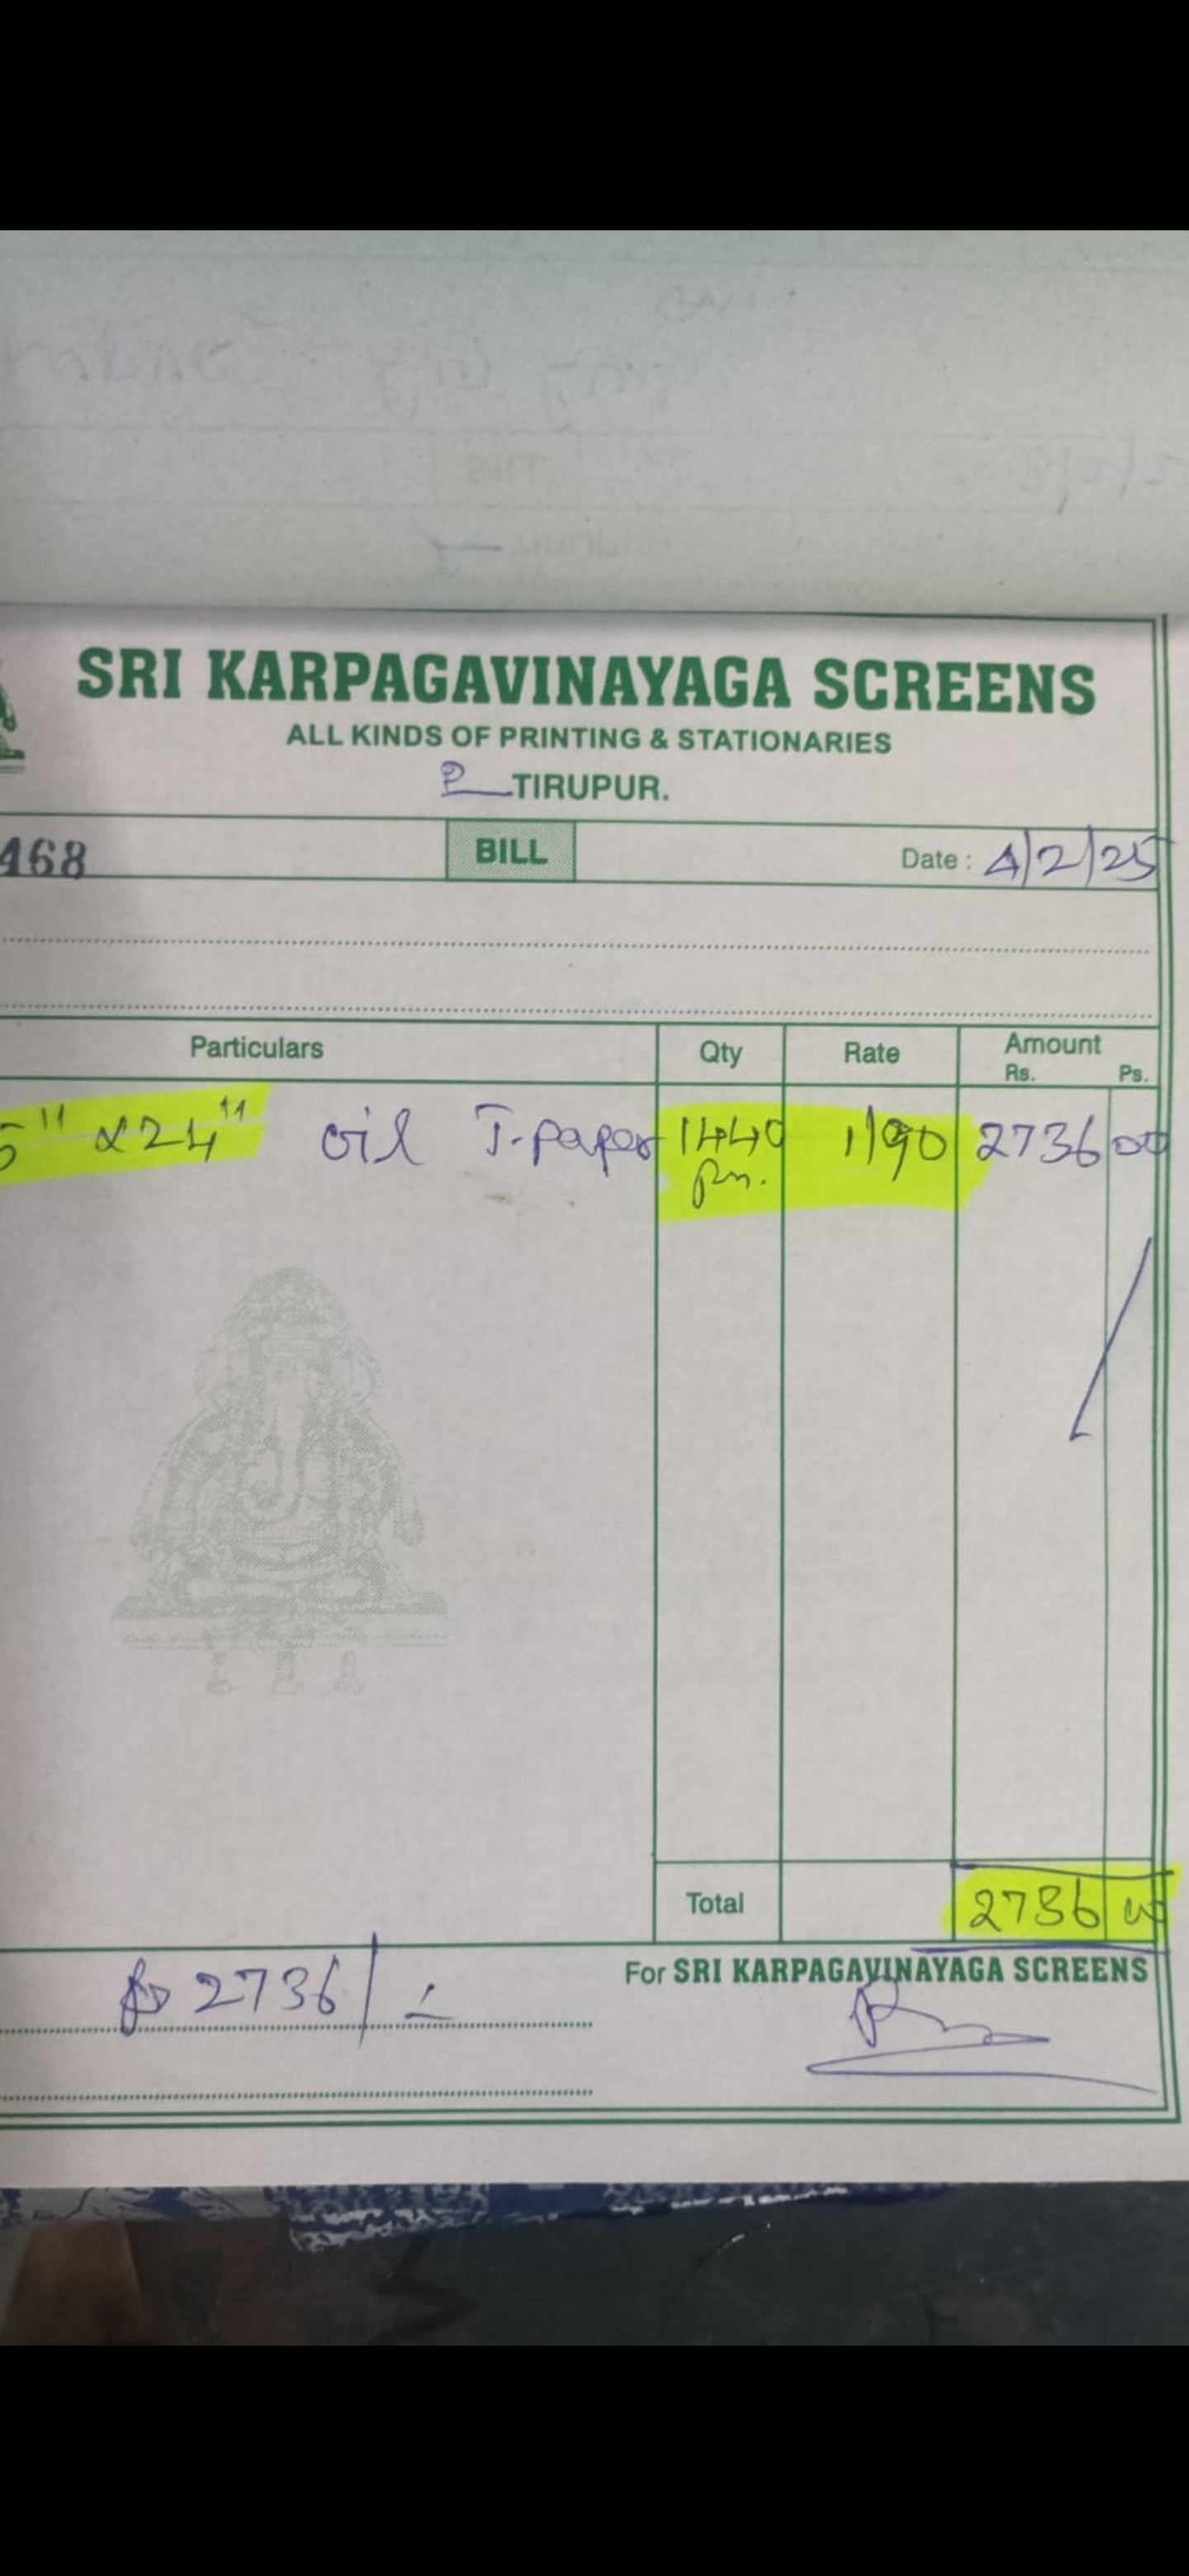 SRI KARPAGAVINAYAGA SCREENS
ALL KINDS OF PRINTING & STATIONARIES
P TIRUPUR.
468 BILL Date : 4/2/25
Particulars Qty Rate Amount
Rs. Ps.
5" x 24" oil T.paper 1440 1/90 2736 00
Total 2736 00
For SRI KARPAGAVINAYAGA SCREENS
2736/-